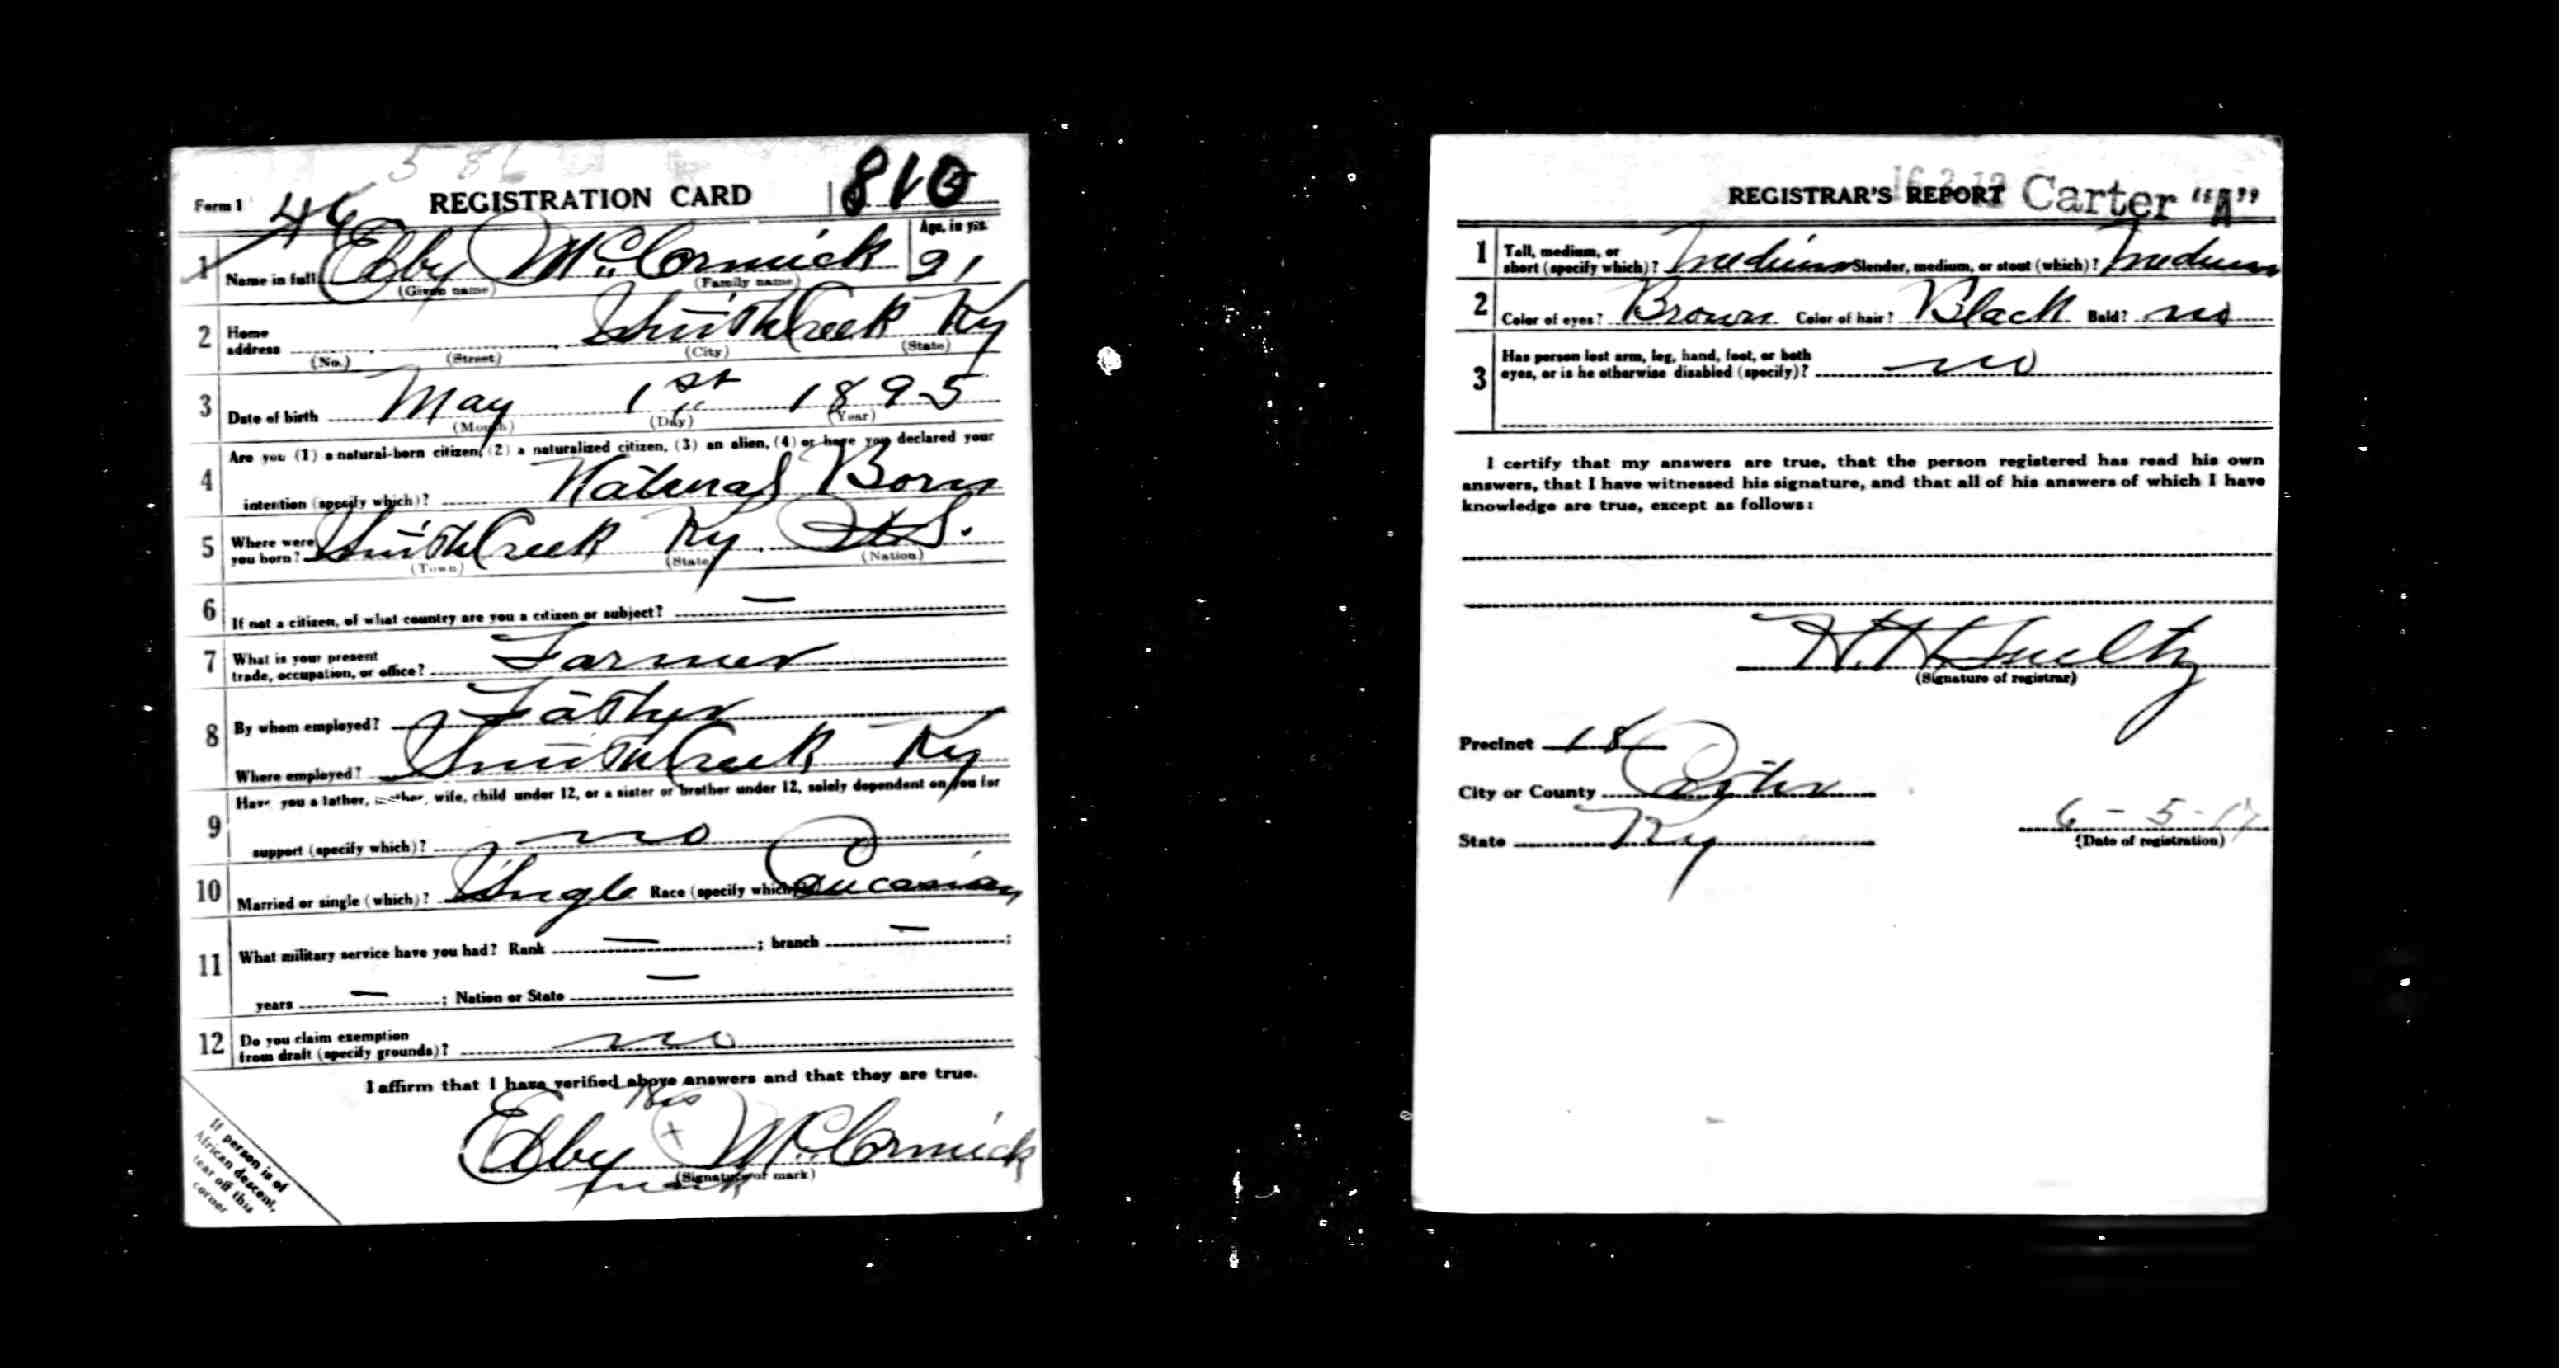 586
Form 1 46 REGISTRATION CARD 810
1 Name in full Ebby McCormick Age, in yrs. 21
(Given name) (Family name)
2 Home address Smith Creek Ky
(No.) (Street) (City) (State)
3 Date of birth May 1st 1895
(Month) (Day) (Year)
4 Are you (1) a natural-born citizen, (2) a naturalized citizen, (3) an alien, (4) or have you declared your
intention (specify which)? Natural Born
5 Where were you born? Smith Creek Ky U.S.
(Town) (State) (Nation)
6 If not a citizen, of what country are you a citizen or subject? —
7 What is your present
trade, occupation, or office? Farmer
8 By whom employed? Father
Where employed? Smith Creek Ky
9 Have you a father, mother, wife, child under 12, or a sister or brother under 12, solely dependent on you for
support (specify which)? no
10 Married or single (which)? Single Race (specify which)? Caucasian
11 What military service have you had? Rank — ; branch — ;
years — ; Nation or State —
12 Do you claim exemption
from draft (specify grounds)? no
I affirm that I have verified above answers and that they are true.
his
Ebby x McCormick
(Signature or mark)
mark
If person is of
African descent,
tear off this
corner
REGISTRAR'S REPORT Carter "A"
1 Tall, medium, or
short (specify which)? medium Slender, medium, or stout (which)? medium
2 Color of eyes? Brown Color of hair? Black Bald? no
3 Has person lost arm, leg, hand, foot, or both
eyes, or is he otherwise disabled (specify)? no
I certify that my answers are true, that the person registered has read his own
answers, that I have witnessed his signature, and that all of his answers of which I have
knowledge are true, except as follows:
H. H.
(Signature of registrar)
Precinct 18
City or County Carter
State Ky 6-5-17
(Date of registration)